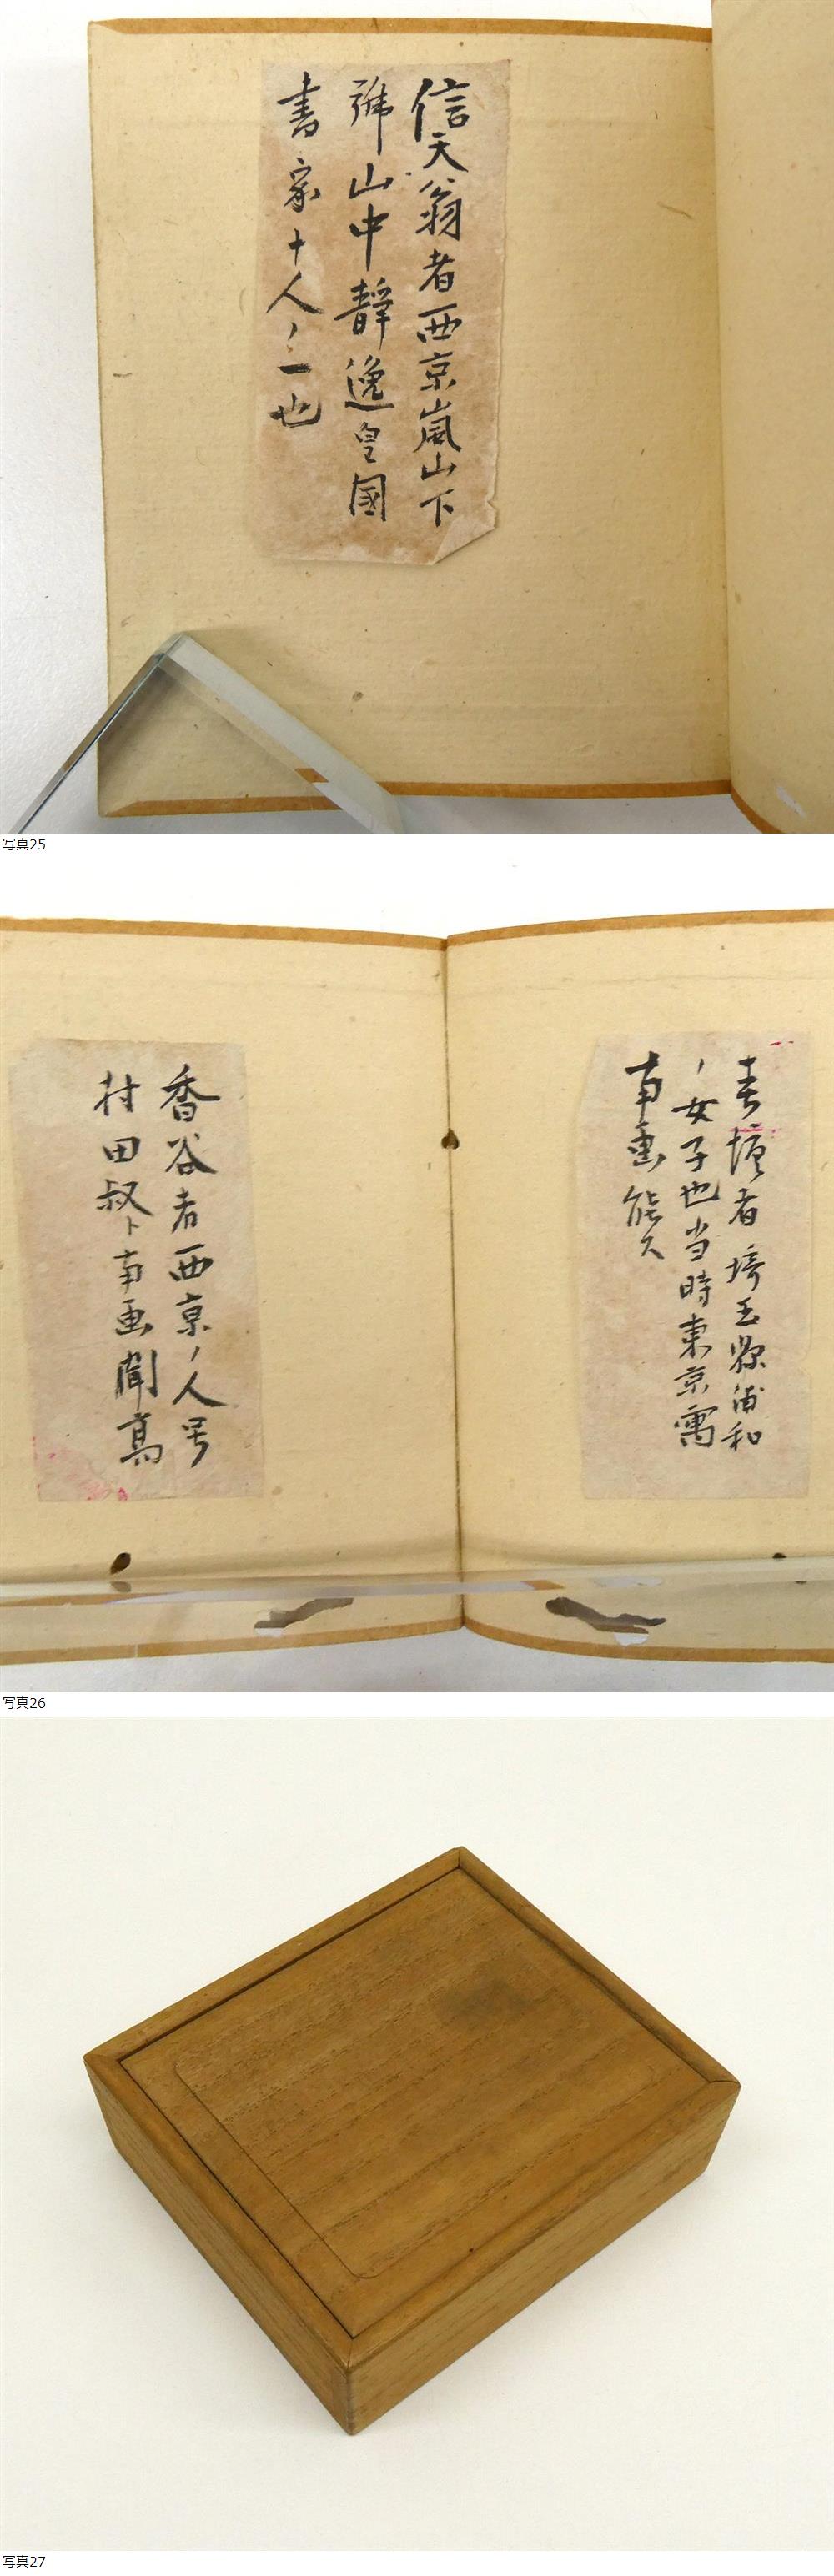 信天翁者西京嵐山下
號山中靜逸皇國
書家十人ノ一也
写真25
香谷者西京ノ人号
村田叔ト南画聞高
者埼玉縣浦和
ノ女子也当時東京寓
南画能ス
写真26
写真27